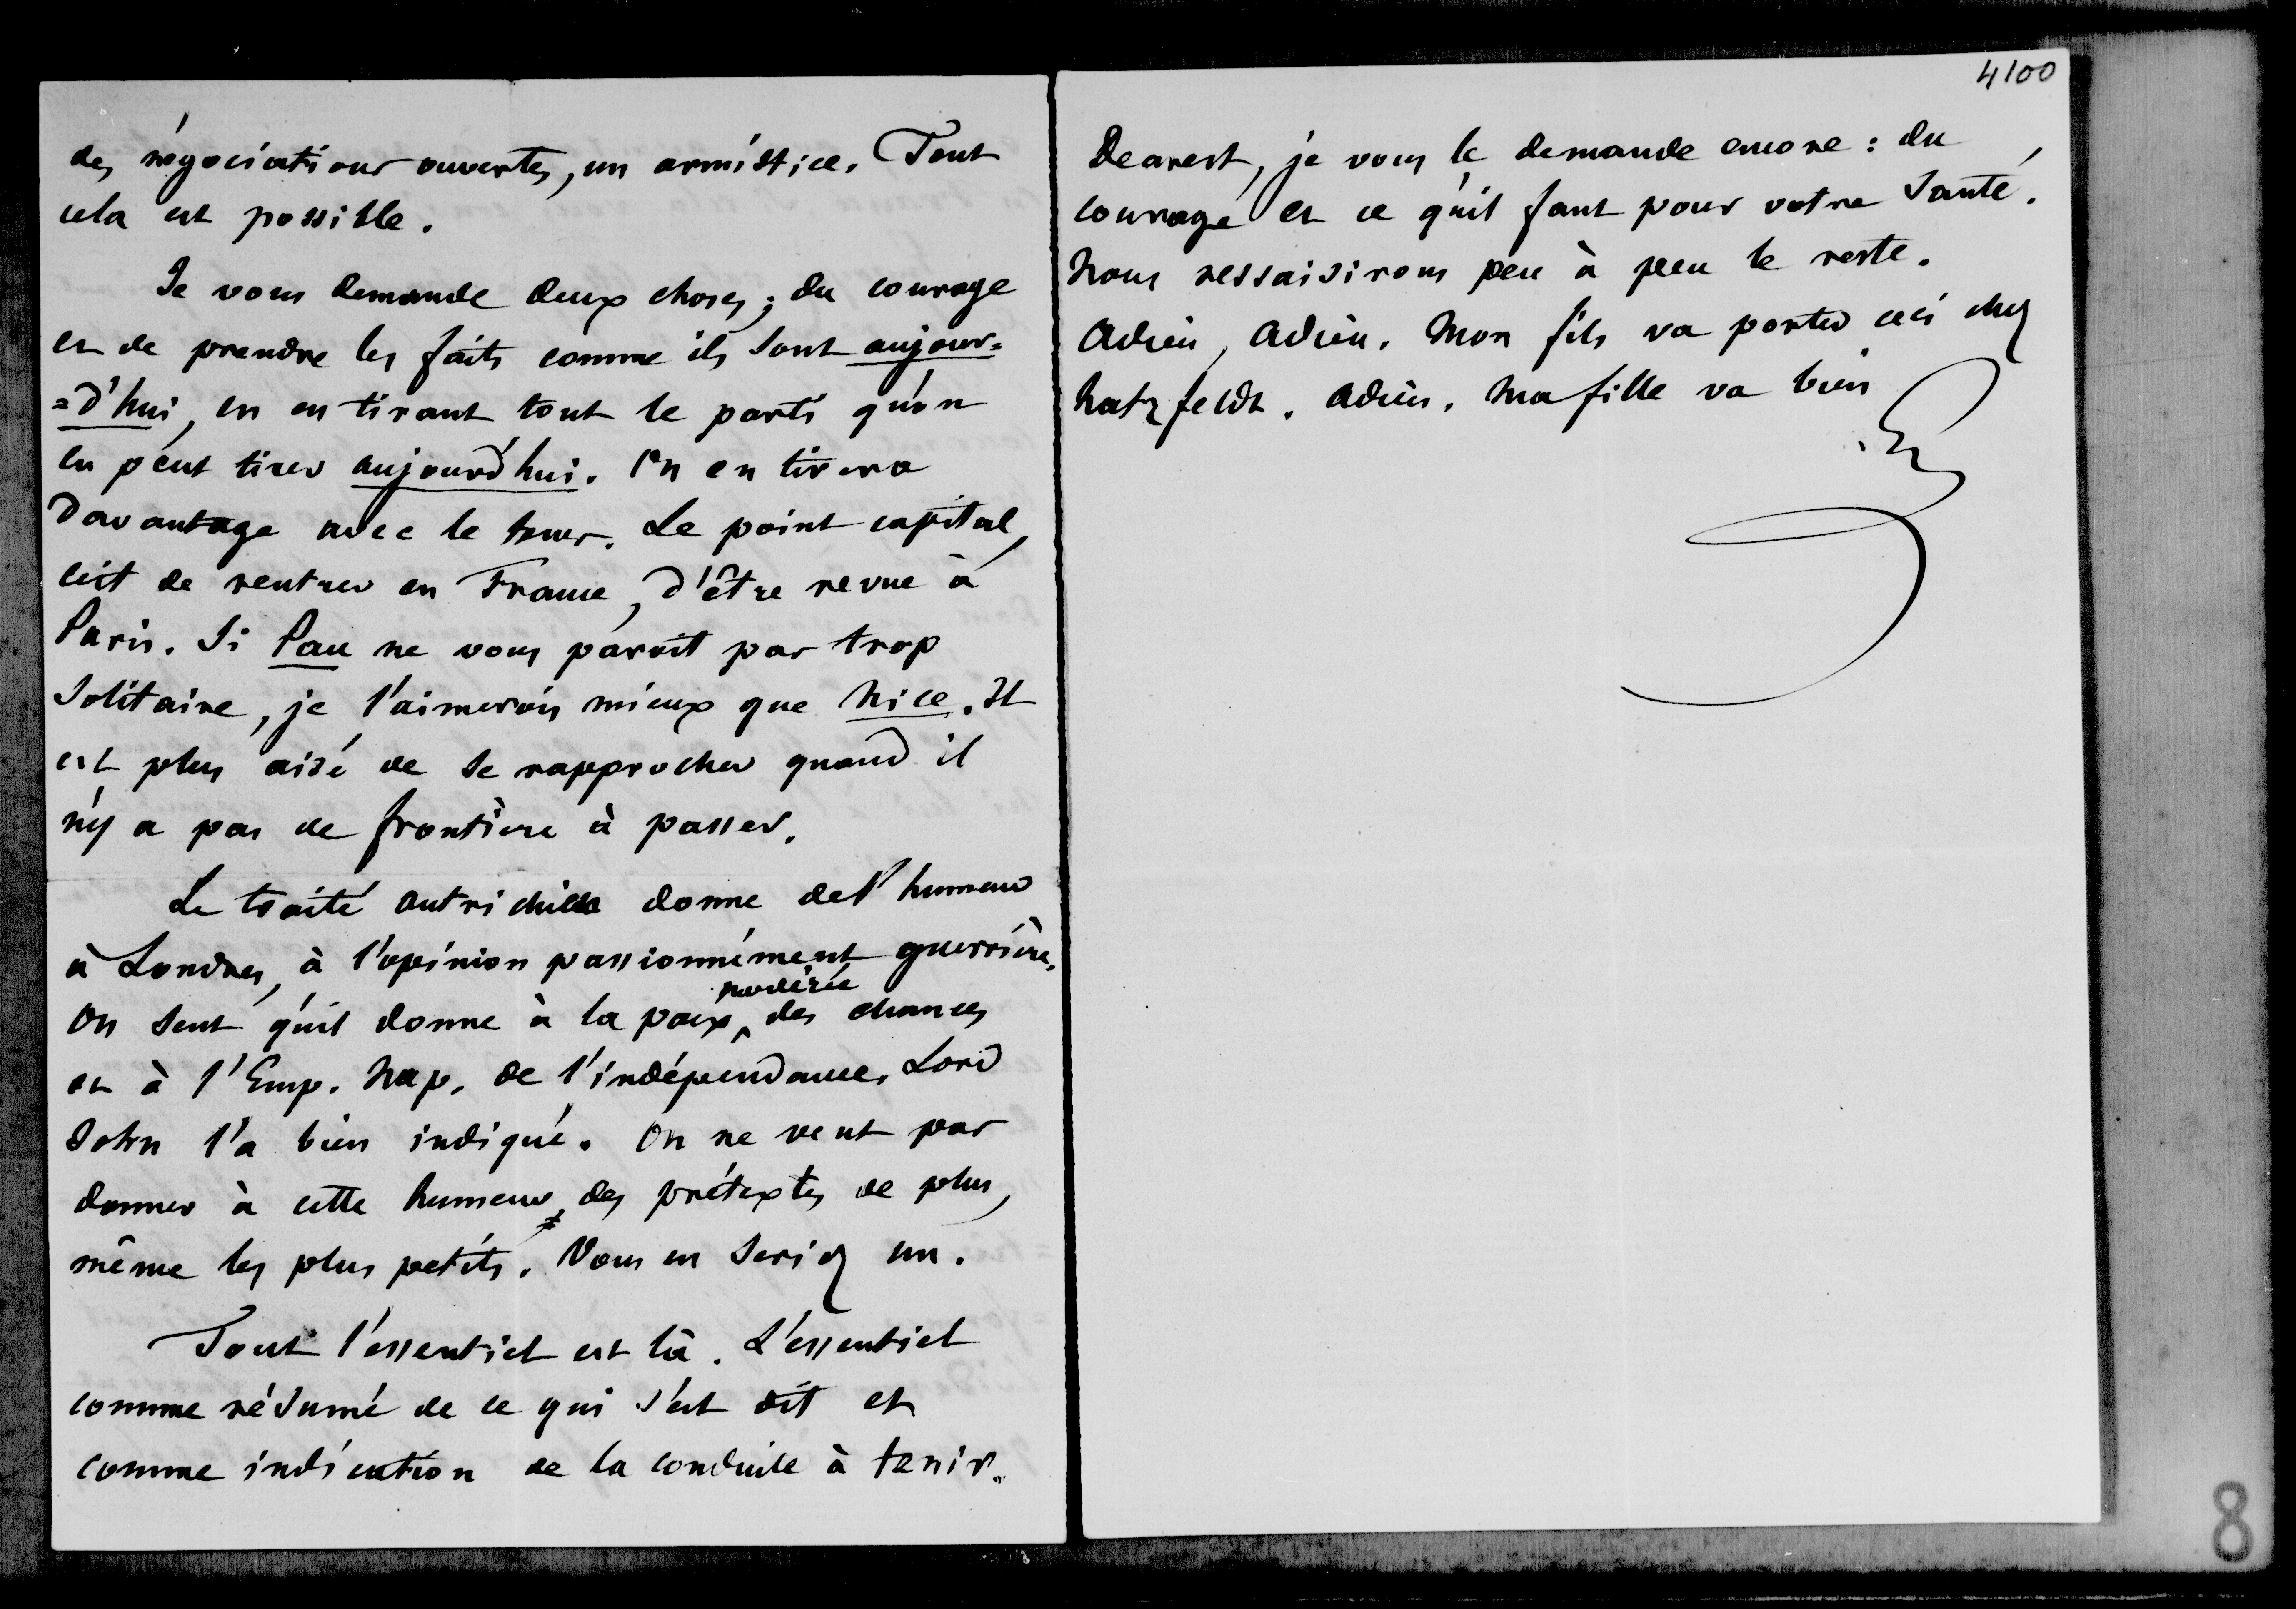 des négociations ouvertes, un armistice. Tout
cela est possible.
Je vous demande deux choses ; du courage
et de prendre les faits comme ils sont aujour=
=d'hui, en en tirant tout le parti qu'on
en peut tirer aujourd'hui. On en tirera
davantage avec le tems. Le point capital,
c'est de rentrer en France, d'être revue à
Paris. Si Pau ne vous paroit pas trop
solitaire, je l'aimerois mieux que Nice. Il
est plus aisé de se rapprocher quand il
n'y a pas de frontière à passer.
Le traité autrichien donne de l'humeur
à Londres, à l'opinion passionnément guerrière.
On sent qu'il donne à la paix modérée des chances
et à l'Emp. Nap. de l'indépendance. Lord
John l'a bien indiqué. On ne veut pas
donner à cette humeur des prétextes de plus,
même les plus petits. Vous en seriez un.
Tout l'essentiel est là. L'essentiel
comme résumé de ce qui s'est dit et
comme indication de la conduite à tenir.
4100
Dearest, je vous le demande encore : du
courage et ce qu'il faut pour votre santé.
Nous ressaisirons peu à peu le reste.
Adieu, Adieu. Mon fils va porter ceci chez
Hatzfeldt. Adieu. Ma fille va bien
8